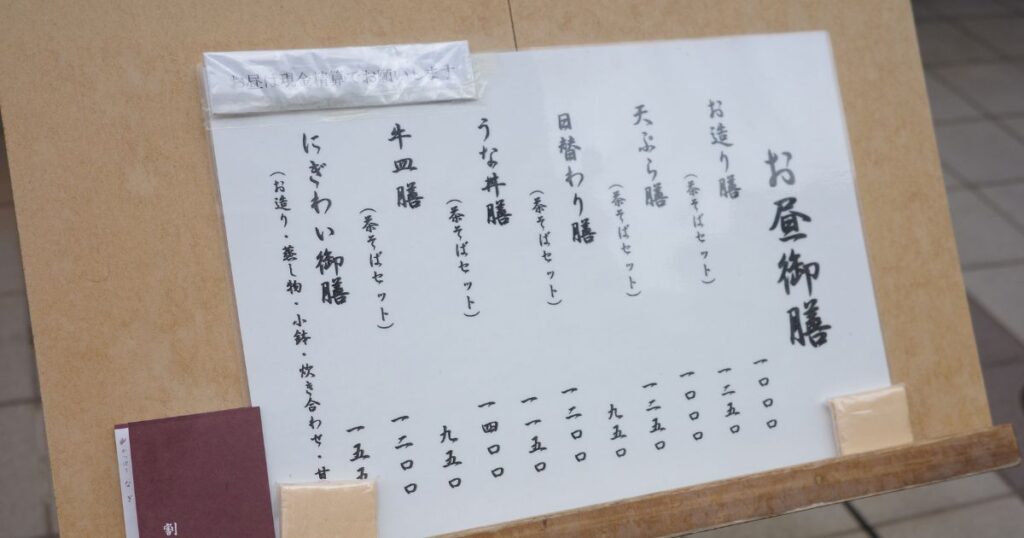 お昼は現金精算でお願いします
お昼御膳
お造り膳 一〇〇〇
（茶そばセット） 一二五〇
天ぷら膳 一〇〇〇
（茶そばセット） 一二五〇
日替わり膳 九五〇
（茶そばセット） 一二〇〇
うな丼膳 一一五〇
（茶そばセット） 一四〇〇
牛皿膳 九五〇
（茶そばセット） 一二〇〇
にぎわい御膳 一五五
（お造り・蒸し物・小鉢・炊き合わせ・甘
割